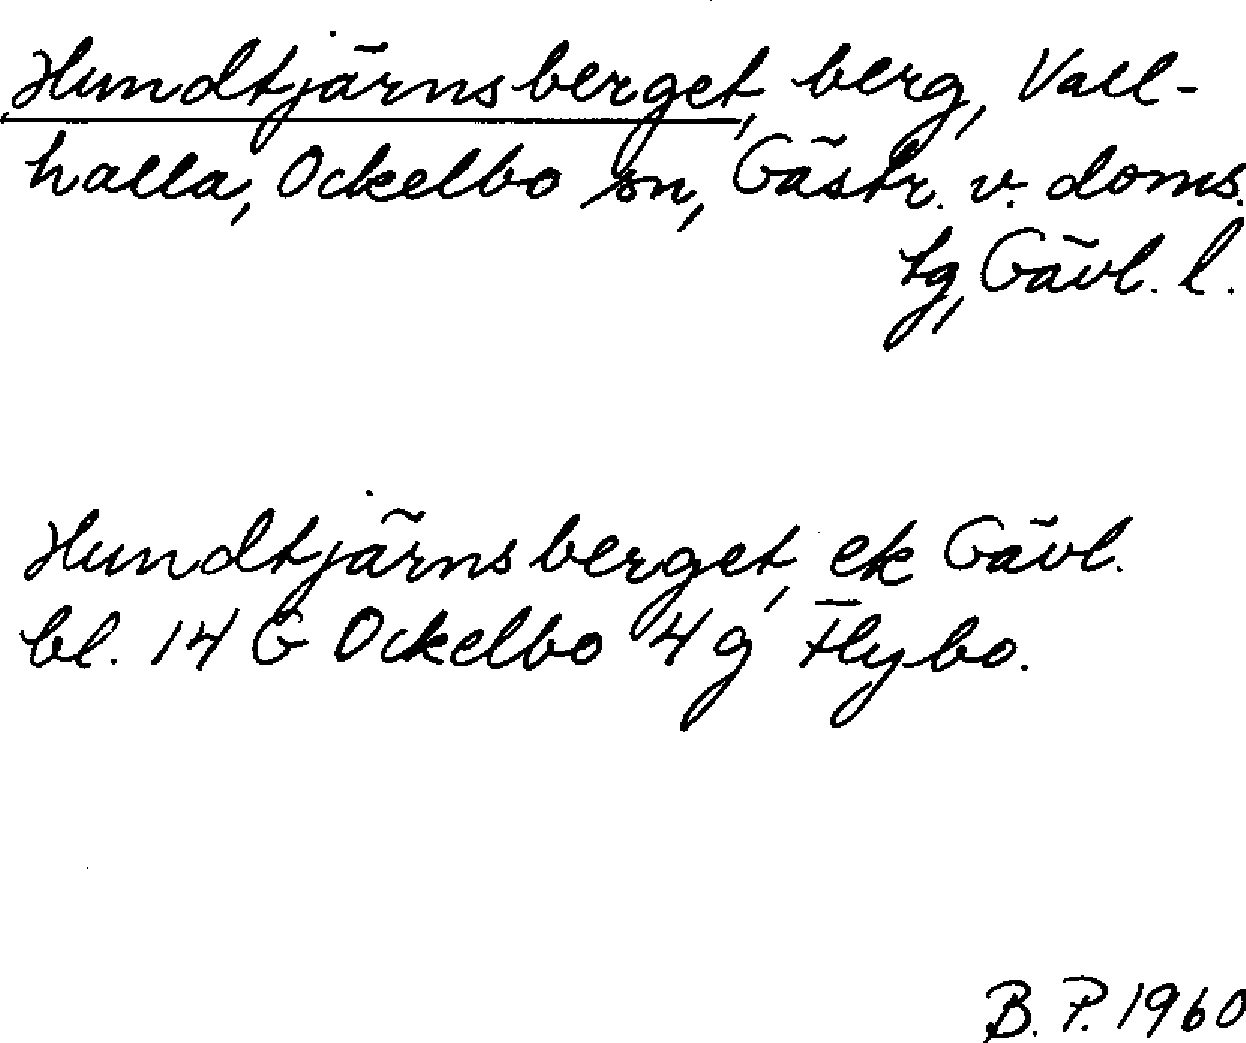 Hundtjärnsberget, berg, Vall-
halla, Ockelbo sn, Gästr. v. doms.
tg, Gävl. l.
Hundtjärnsberget, ek Gävl.
bl. 14 G Ockelbo 4 g Flybo.
B. P. 1960